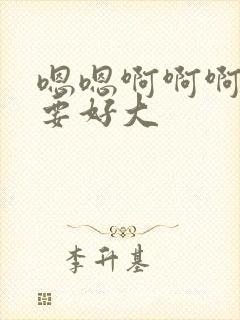 嗯嗯啊啊啊
要好大
李升基